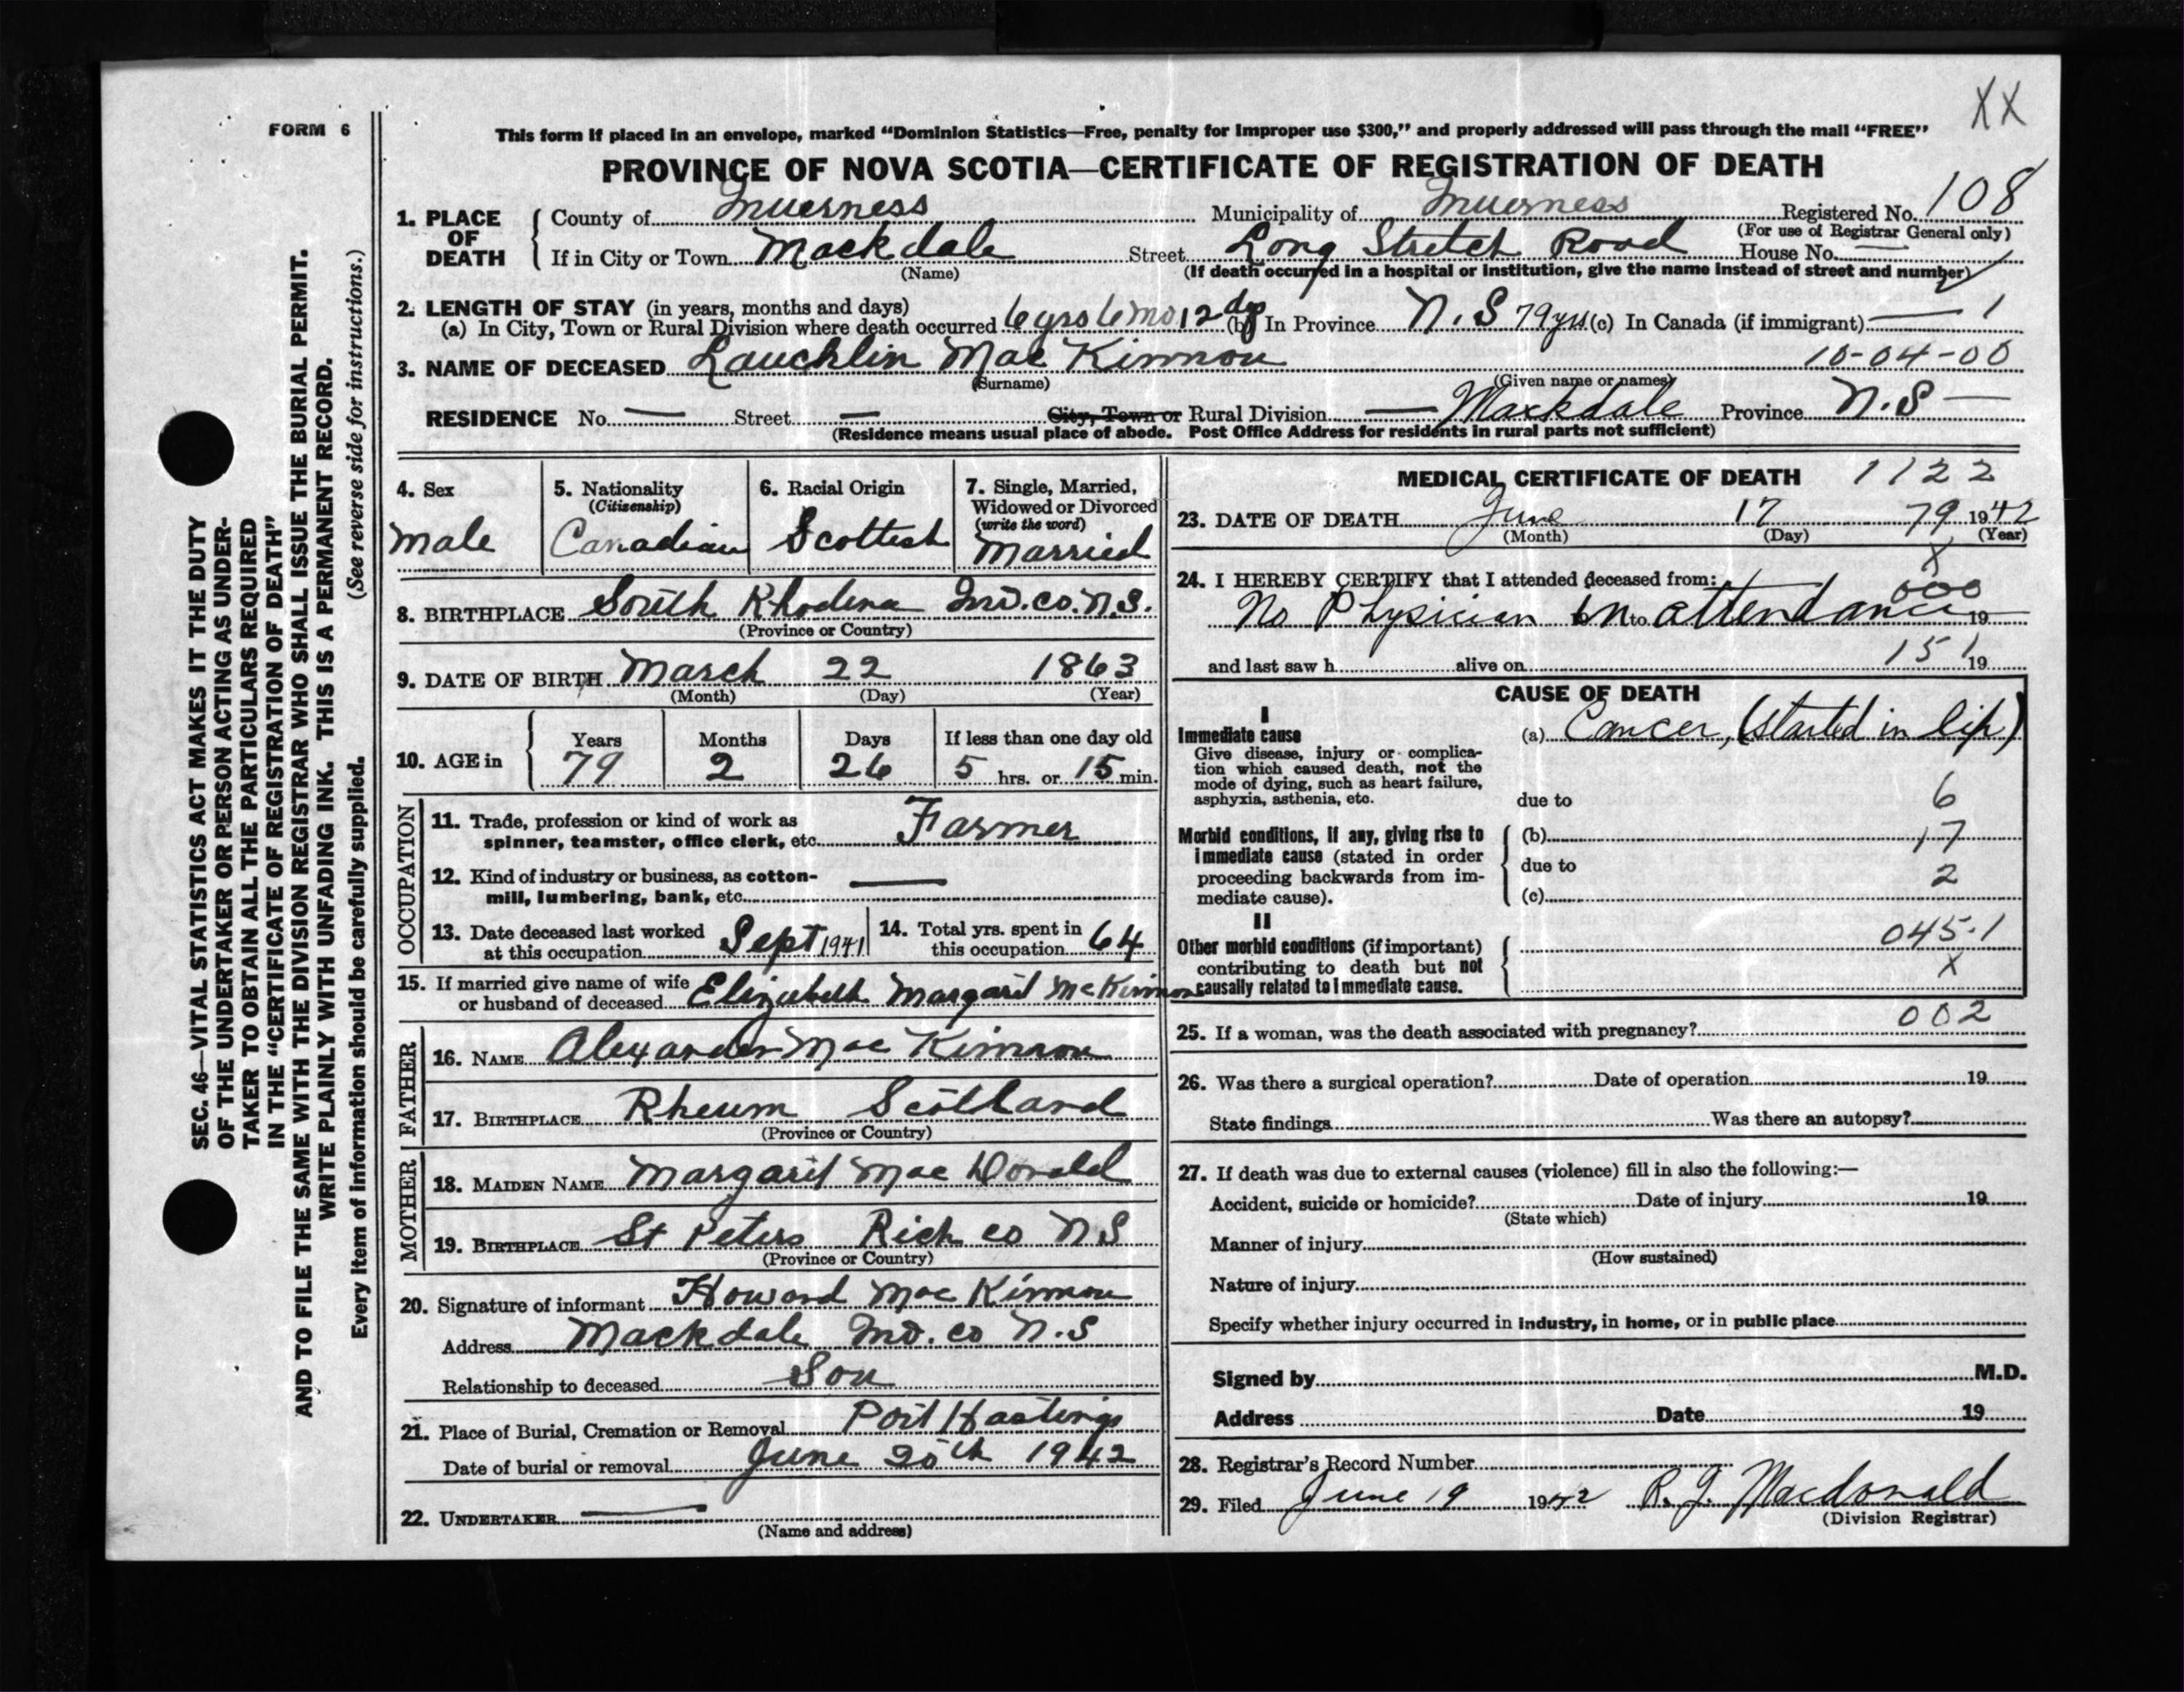 XX
FORM 6
This form if placed in an envelope, marked "Dominion Statistics—Free, penalty for improper use $300," and properly addressed will pass through the mail "FREE"
PROVINCE OF NOVA SCOTIA—CERTIFICATE OF REGISTRATION OF DEATH
1. PLACE OF DEATH
County of Inverness Municipality of Inverness Registered No. 108
(For use of Registrar General only)
If in City or Town Mackdale Street Long Stretch Road House No. —
(Name) (If death occurred in a hospital or institution, give the name instead of street and number)
2. LENGTH OF STAY (in years, months and days)
(a) In City, Town or Rural Division where death occurred 6 yrs 6 mo 12 dys (b) In Province N.S 79 yrs (c) In Canada (if immigrant) — 1
3. NAME OF DECEASED Lauchlin Mac Kinnon 10-04-00
(Surname) (Given name or names)
RESIDENCE No. — Street — City, Town or Rural Division — Mackdale Province N.S —
(Residence means usual place of abode. Post Office Address for residents in rural parts not sufficient)
4. Sex
male
5. Nationality
(Citizenship)
Canadian
6. Racial Origin
Scottish
7. Single, Married, Widowed or Divorced
(write the word)
Married
8. BIRTHPLACE South Rhodena Inv. co. N.S.
(Province or Country)
9. DATE OF BIRTH March 22 1863
(Month) (Day) (Year)
10. AGE in
Years Months Days If less than one day old
79 2 26 5 hrs. or 15 min.
OCCUPATION
11. Trade, profession or kind of work as
spinner, teamster, office clerk, etc. Farmer
12. Kind of industry or business, as cotton-
mill, lumbering, bank, etc. —
13. Date deceased last worked
at this occupation Sept 1941
14. Total yrs. spent in
this occupation 64
15. If married give name of wife
or husband of deceased Elizabeth Margaret McKinnon
FATHER
16. NAME Alexander Mac Kinnon
17. BIRTHPLACE Rheum Scotland
(Province or Country)
MOTHER
18. MAIDEN NAME Margaret Mac Donald
19. BIRTHPLACE St Peters Rich co N S
(Province or Country)
20. Signature of informant Howard Mac Kinnon
Address Mackdale Inv. co N.S
Relationship to deceased Son
21. Place of Burial, Cremation or Removal Port Hastings
Date of burial or removal June 20th 1942
22. UNDERTAKER —
(Name and address)
MEDICAL CERTIFICATE OF DEATH 1122
23. DATE OF DEATH June 17 79 1942
(Month) (Day) (Year)
X
24. I HEREBY CERTIFY that I attended deceased from: 000
No Physician in to attendance 19
and last saw h alive on 151 19
CAUSE OF DEATH
I
Immediate cause
Give disease, injury or complica-
tion which caused death, not the
mode of dying, such as heart failure,
asphyxia, asthenia, etc.
(a) Cancer, (started in lip)
due to 6
Morbid conditions, if any, giving rise to
immediate cause (stated in order
proceeding backwards from im-
mediate cause).
(b) 17
due to 2
(c)
II
Other morbid conditions (if important)
contributing to death but not
causally related to immediate cause.
045.1
X
25. If a woman, was the death associated with pregnancy? 002
26. Was there a surgical operation? Date of operation 19
State findings Was there an autopsy?
27. If death was due to external causes (violence) fill in also the following:—
Accident, suicide or homicide? Date of injury 19
(State which)
Manner of injury
(How sustained)
Nature of injury
Specify whether injury occurred in industry, in home, or in public place
Signed by M.D.
Address Date 19
28. Registrar's Record Number
29. Filed June 19 1942 R. J. Macdonald
(Division Registrar)
SEC. 46—VITAL STATISTICS ACT MAKES IT THE DUTY
OF THE UNDERTAKER OR PERSON ACTING AS UNDER-
TAKER TO OBTAIN ALL THE PARTICULARS REQUIRED
IN THE "CERTIFICATE OF REGISTRATION OF DEATH"
AND TO FILE THE SAME WITH THE DIVISION REGISTRAR WHO SHALL ISSUE THE BURIAL PERMIT.
WRITE PLAINLY WITH UNFADING INK. THIS IS A PERMANENT RECORD.
Every item of information should be carefully supplied. (See reverse side for instructions.)